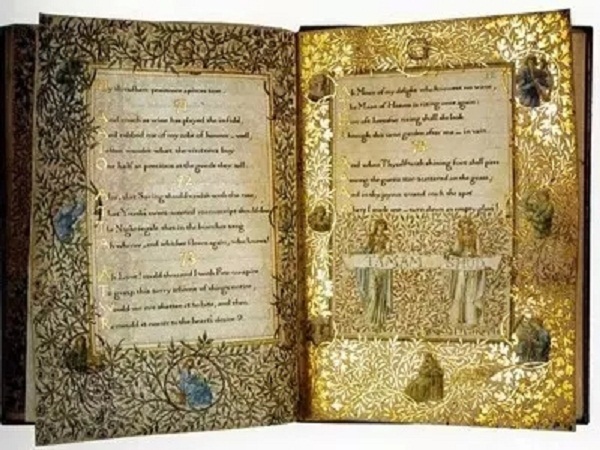 My threadbare penitence apieces tore.
And much as wine has played the infidel,
And robbed me of my robe of honour — well,
I often wonder what the vintners buy
One half so precious as the goods they sell.
72
Alas, that Spring should vanish with the rose,
That Youth's sweet-scented manuscript should close
The Nightingale that in the branches sang
Ah whence, and whither flown again, who knows!
73
Ah Love! could thou and I with Fate conspire
To grasp this sorry scheme of things entire,
Would we not shatter it to bits, and then
Re-mould it nearer to the heart's desire?
Ah Moon of my delight who knowest no wane,
The Moon of Heaven is rising once again:
How oft hereafter rising shall she look
Through this same garden after me — in vain.
And when Thyself with shining foot shall pass
Among the guests star-scattered on the grass,
And in thy joyous errand reach the spot
Where I made one — turn down an empty glass!
TAMAM SHUD